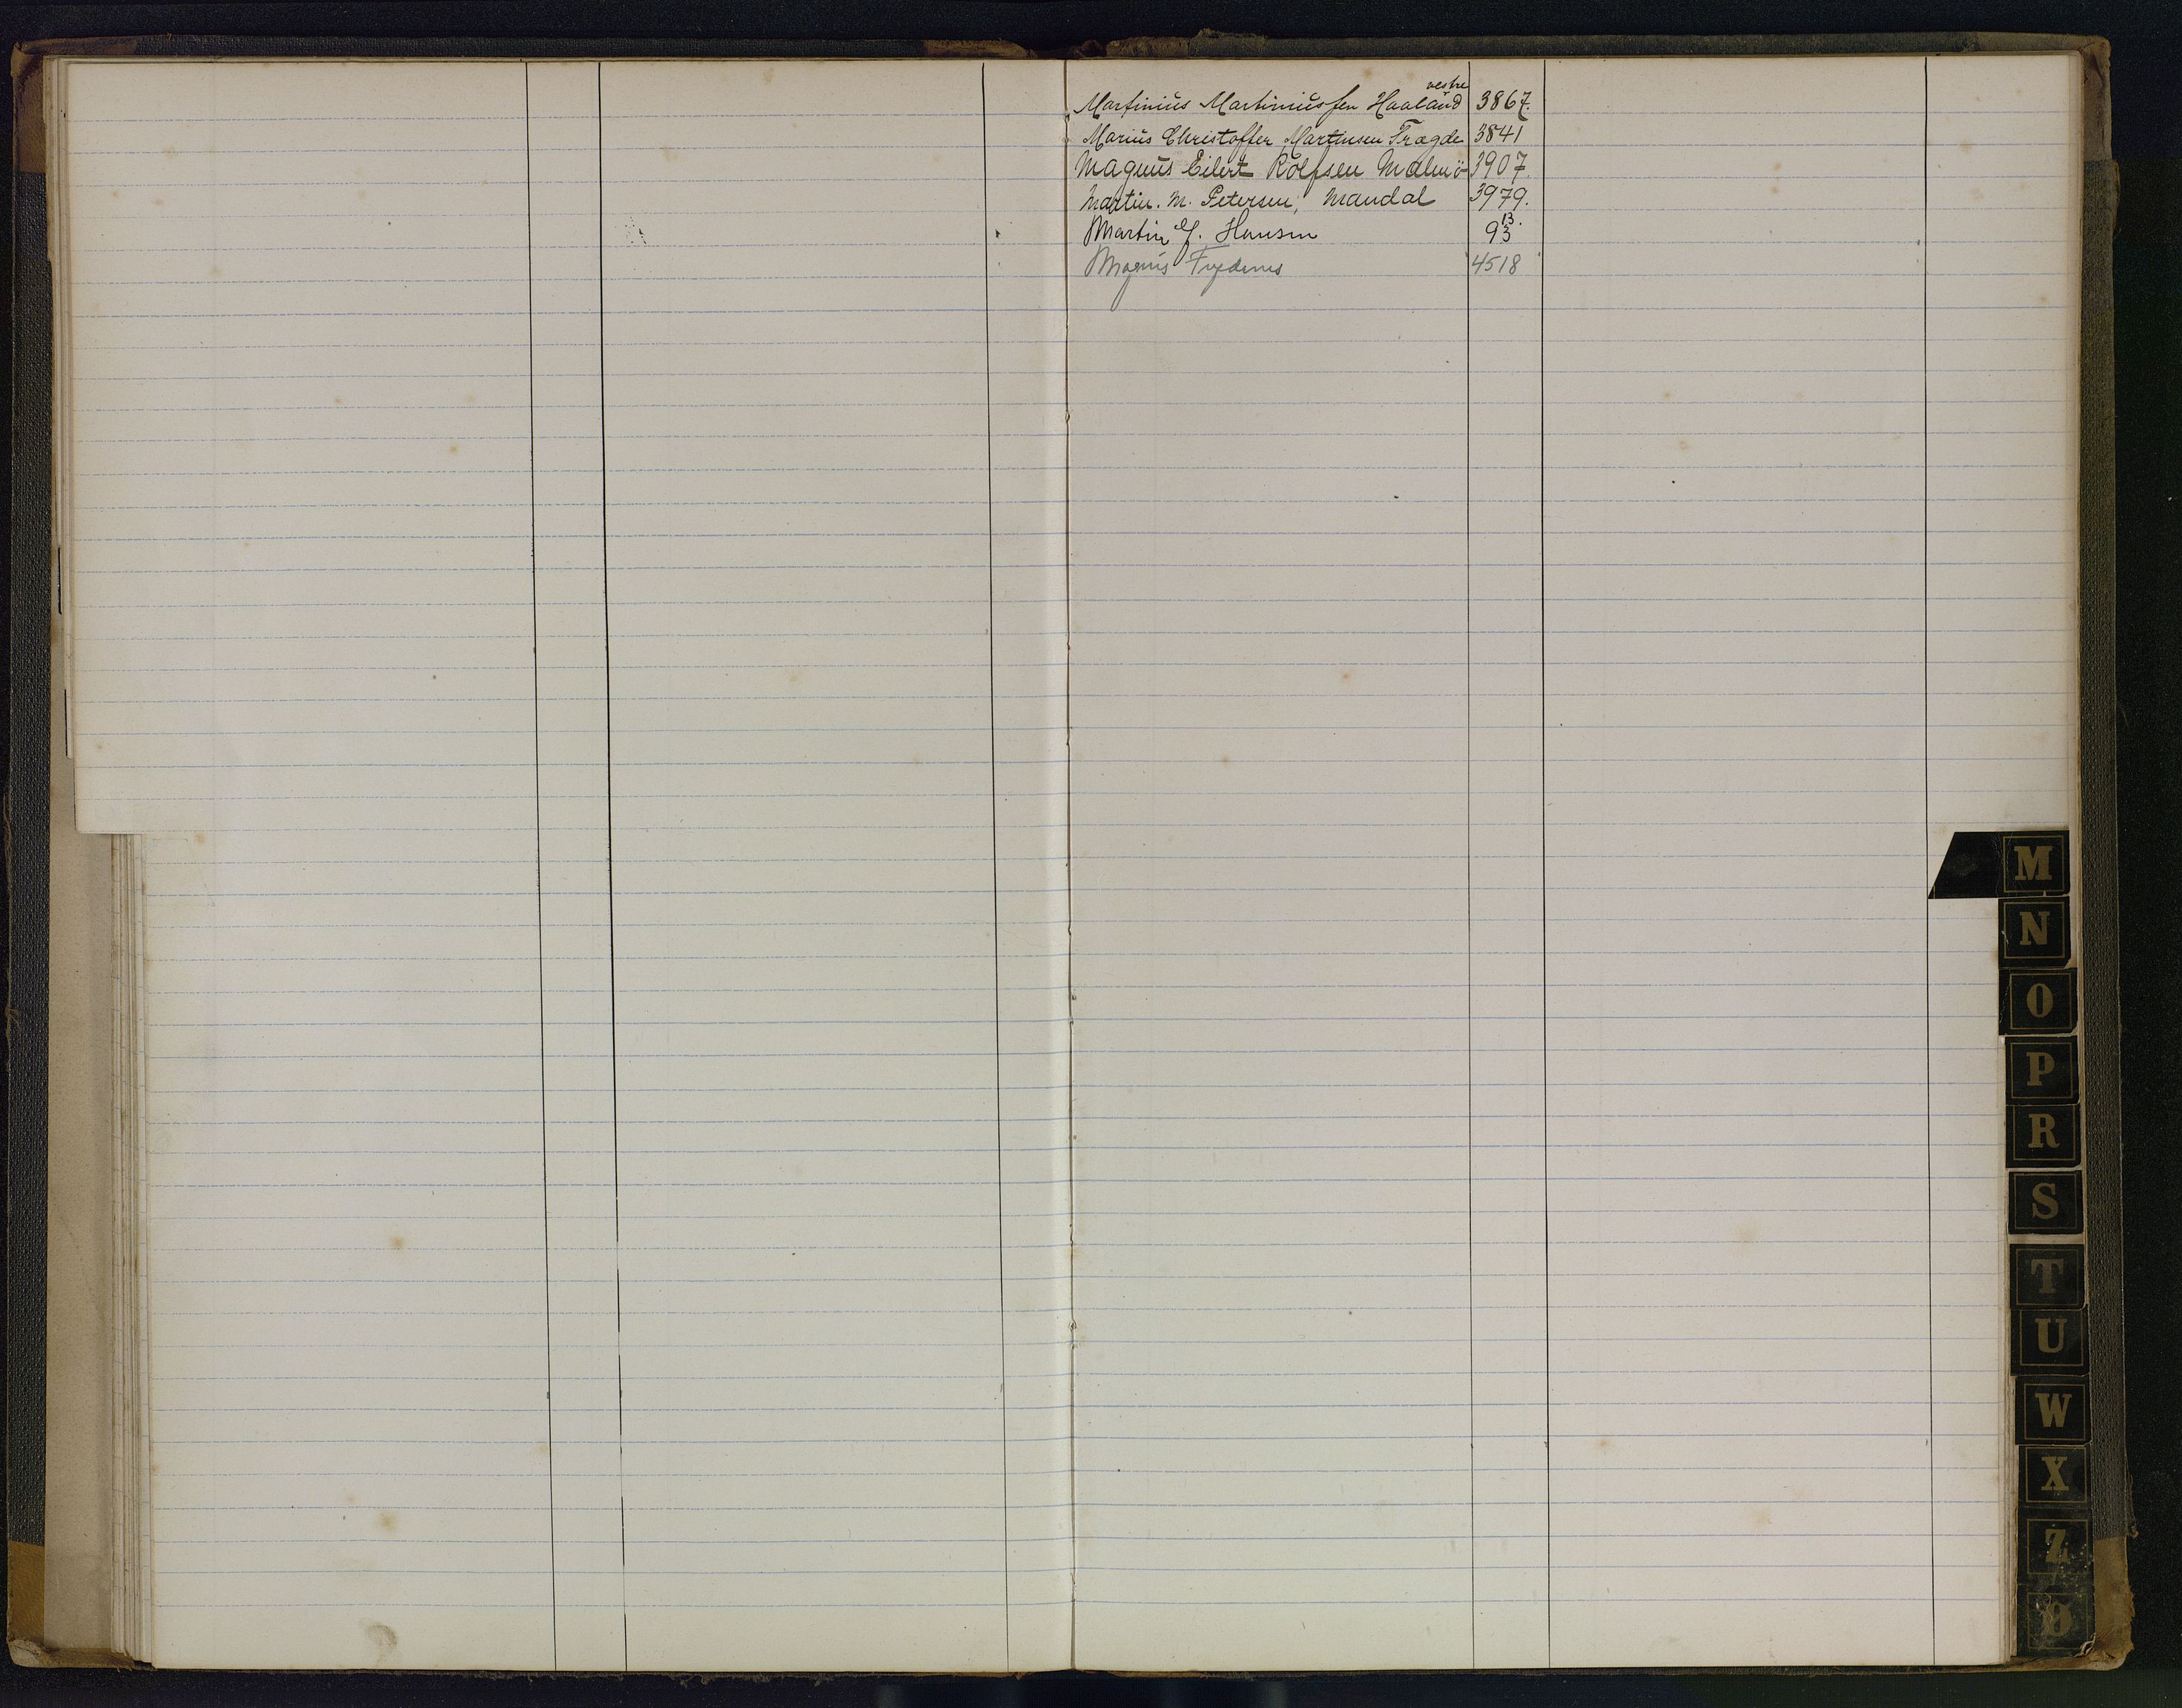 vestre
Martinius Martiniussen Haaland 3867.
Marius Christoffer Martinsen Trægde 3841
Magnus Eilert Rolfsen Malmö 3907.
Martin. M. Petersen, Mandal 3979.
13.
Martin Hansen 93
Magnus 4518
M
N
O
P
R
S
T
U
W
X
Z
Ø